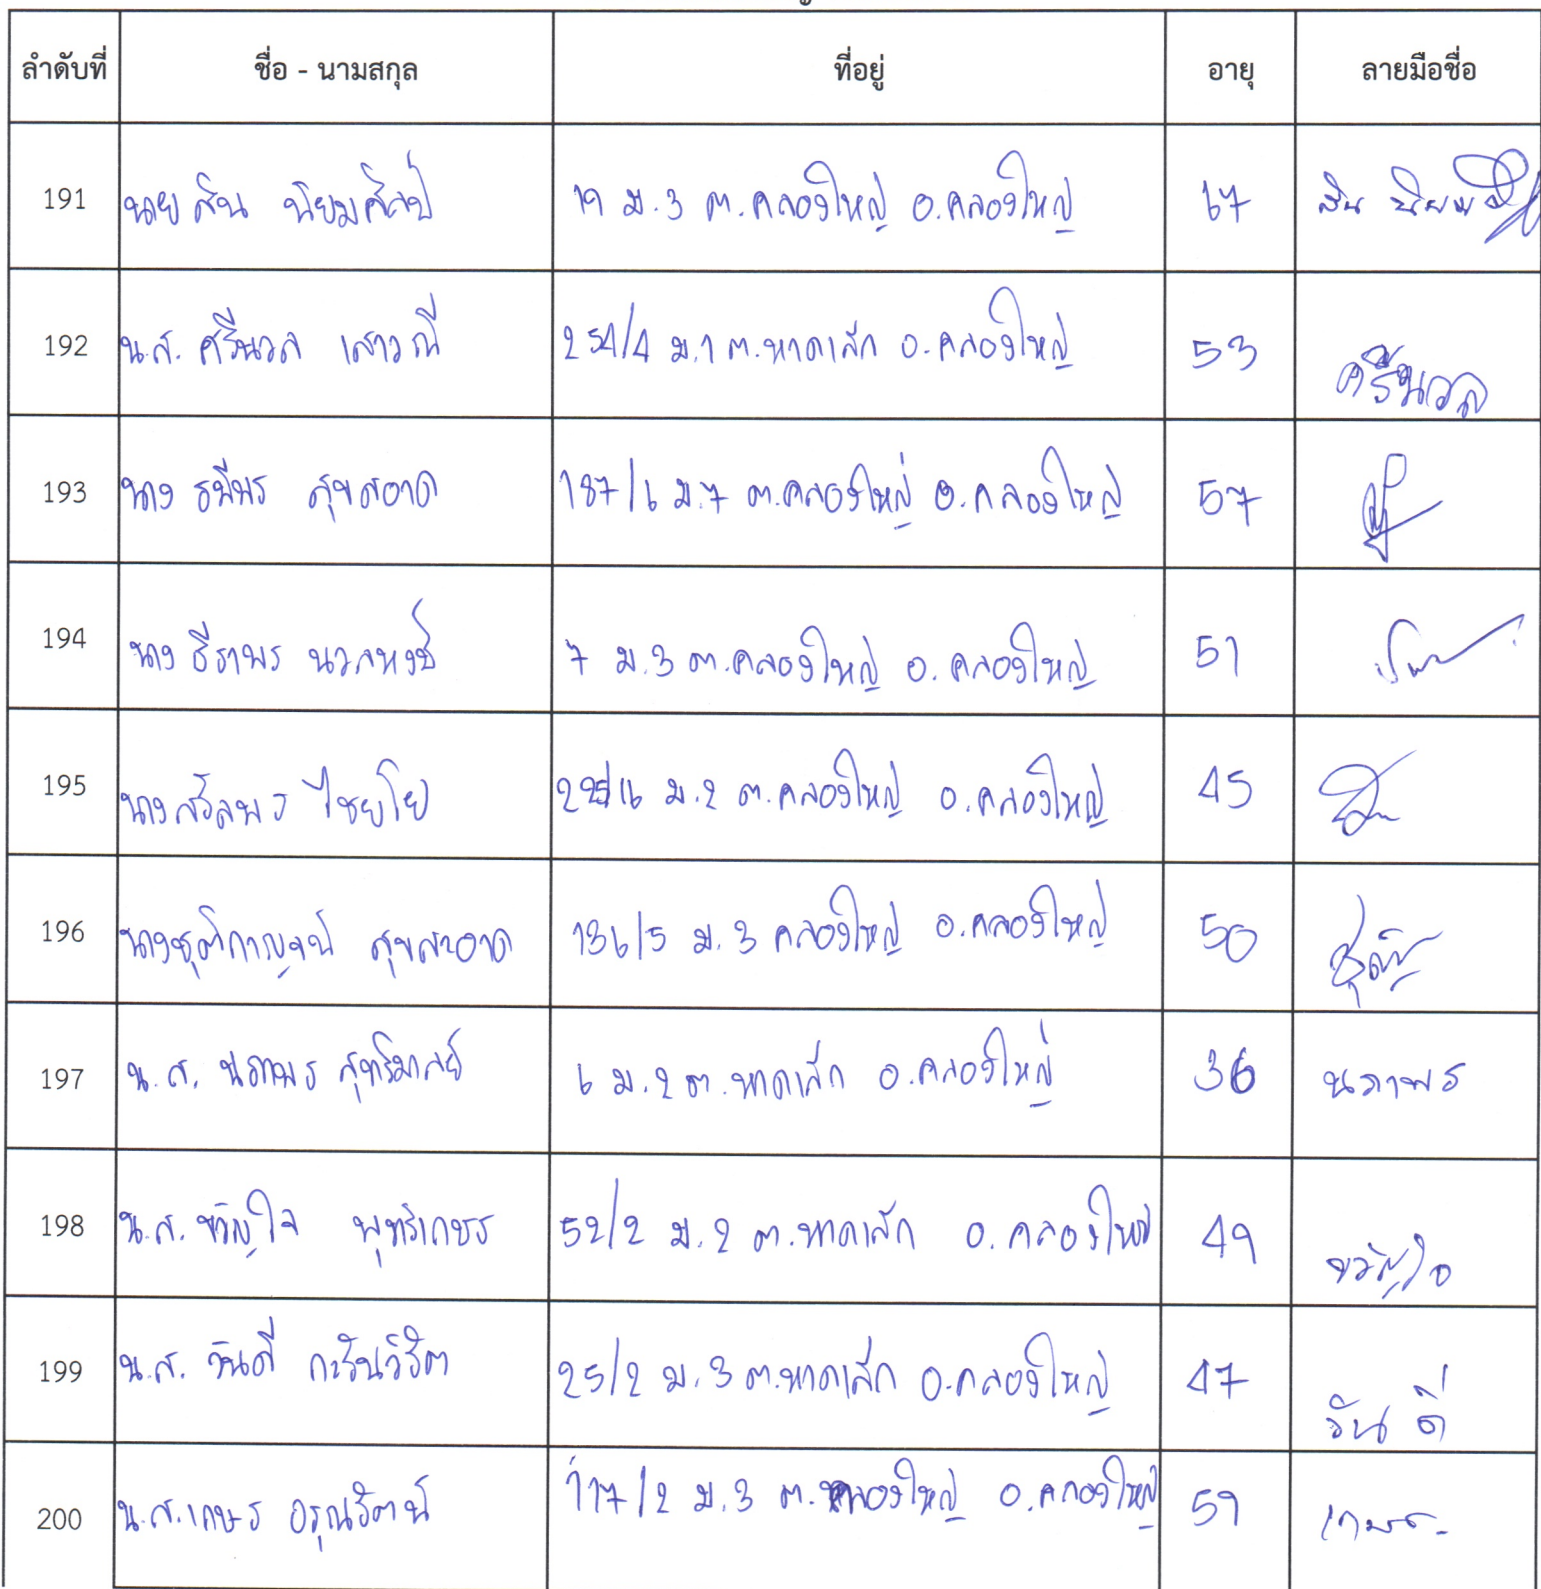 ลำดับที่ ชื่อ - นามสกุล ที่อยู่ อายุ ลายมือชื่อ
191 นาย สิน นิยมศิลป์ 19 ม.3 ต.คลองใหญ่ อ.คลองใหญ่ 67 สิน นิยมศิลป์
192 น.ส. ศรีนวล เสาวณี 254/4 ม.1 ต.หาดเล็ก อ.คลองใหญ่ 53 ศรีนวล
193 นาง ธนีพร สุขสอาด 187/6 ม.7 ต.คลองใหญ่ อ.คลองใหญ่ 57
194 นาง ธีราพร นวลหงษ์ 7 ม.3 ต.คลองใหญ่ อ.คลองใหญ่ 51
195 นาง ไชยโย ม.2 ต.คลองใหญ่ อ.คลองใหญ่ 45
196 นางชุติกาญจน์ สุขสะอาด 136/5 ม.3 คลองใหญ่ อ.คลองใหญ่ 50
197 น.ส. นภาพร สุทธิมาลย์ 6 ม.2 ต.หาดเล็ก อ.คลองใหญ่ 36 นภาพร
198 น.ส. ขวัญใจ พุทธิเกษร 52/2 ม.2 ต.หาดเล็ก อ.คลองใหญ่ 49 ขวัญใจ
199 น.ส. วันดี 25/2 ม.3 ต.หาดเล็ก อ.คลองใหญ่ 47 วันดี
200 น.ส.เกษร อรุณรัตน์ 117/2 ม.3 ต.คลองใหญ่ อ.คลองใหญ่ 59 เกษร